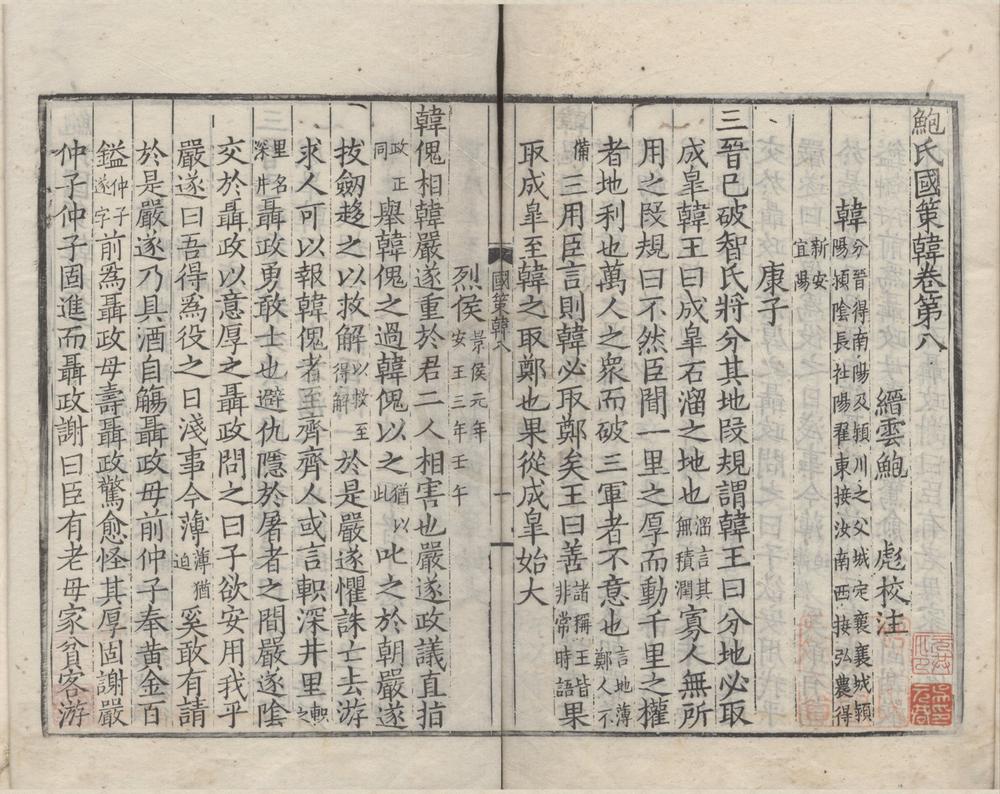 鮑氏國策韓卷第八
縉雲鮑 彪校注
韓分晉得南陽及頴川之父城定襄襄城頴
陽頴陰長社陽翟東接汝南西接弘農得
新安
宜陽
康子
三晉已破智氏將分其地段規謂韓王曰分地必取
成皐韓王曰成皐石溜之地也溜言其無積潤寡人無所
用之段規曰不然臣聞一里之厚而動千里之權
者地利也萬人之衆而破三軍者不意也言地薄鄭人不
備三用臣言則韓必取鄭矣王曰善諸稱王皆非常時語果
取成皐至韓之取鄭也果從成皐始大
國策韓八
一
烈侯景侯元年安王三年壬午
韓傀相韓嚴遂重於君二人相害也嚴遂政議直指
政正同舉韓傀之過韓傀以之猶以此叱之於朝嚴遂
拔劒趍之以救解以救至得解於是嚴遂懼誅亡去游
求人可以報韓傀者至齊齊人或言軹深井里軹之
里名深井聶政勇敢士也避仇隱於屠者之間嚴遂隂
交於聶政以意厚之聶政問之曰子欲安用我乎
嚴遂曰吾得爲役之日淺事今薄薄猶迫奚敢有請
於是嚴遂乃具酒自觴聶政母前仲子奉黄金百
鎰仲子遂字前爲聶政母壽聶政驚愈怪其厚固謝嚴
仲子仲子固進而聶政謝曰臣有老母家貧客游